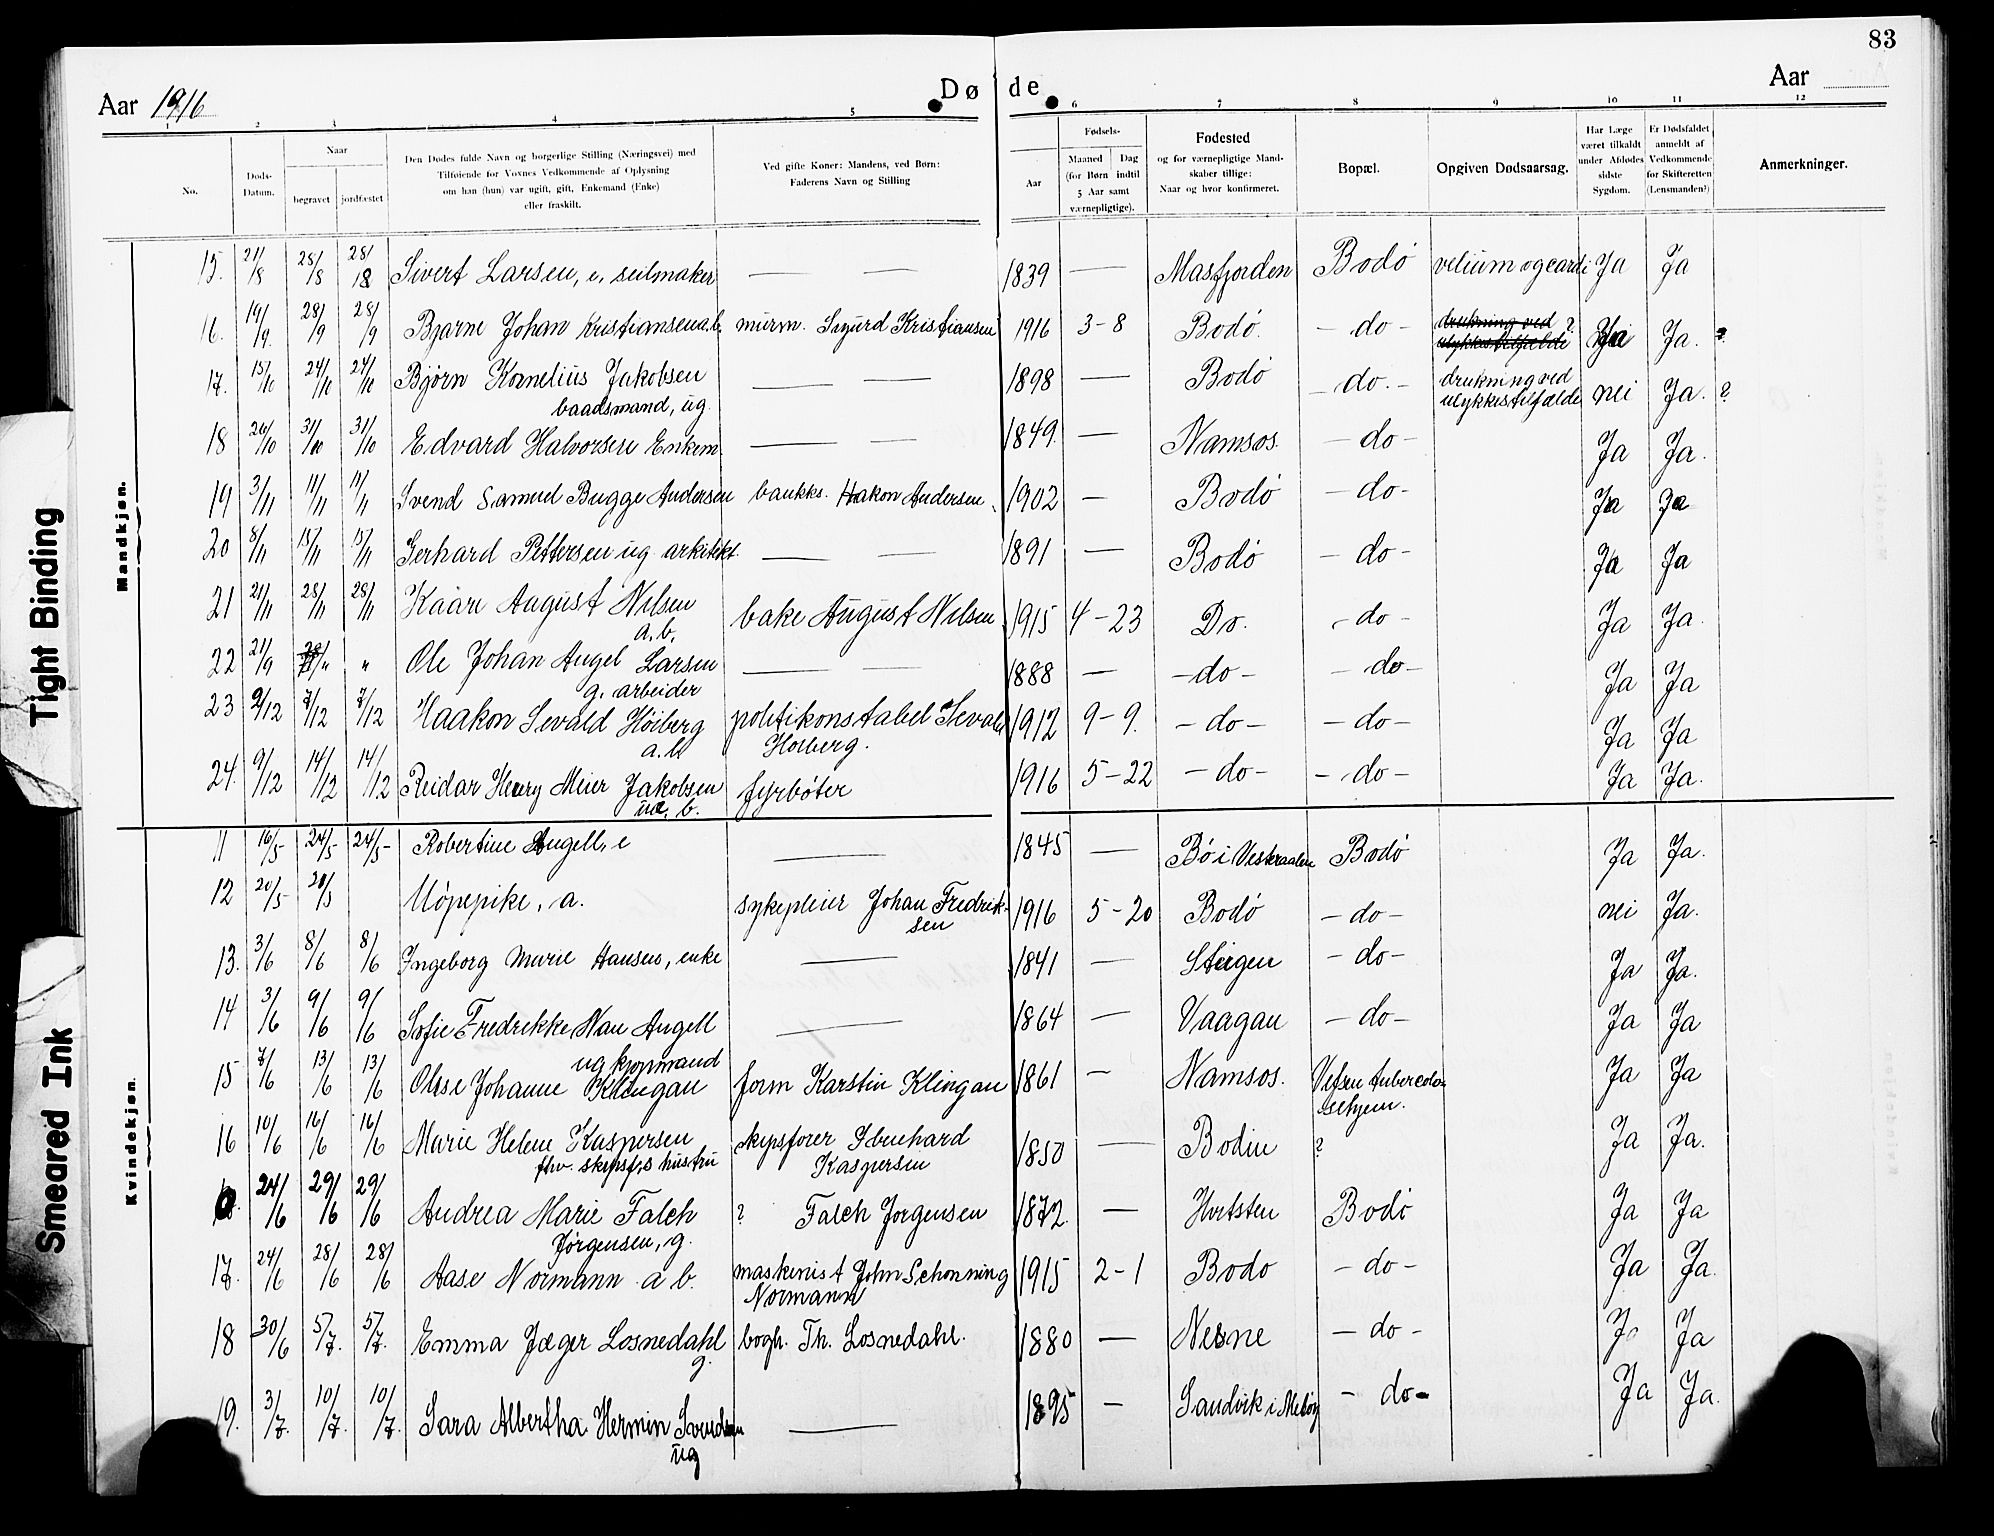 83
Aar 1916
Døde
Aar
1 2 3 4 5 6 7 8 9 10 11 12
No.
Døds-Datum.
Naar
begravet
jordfæstet
Den Dødes fulde Navn og borgerlige Stilling (Næringsvei) med
Tilføiende for Voxnes Vedkommende af Oplysning
om han (hun) var ugift, gift, Enkemand (Enke)
eller fraskilt.
Ved gifte Koner: Mandens, ved Børn:
Faderens Navn og Stilling
Aar
Fødsels-
Maaned Dag
(for Børn indtil
5 Aar samt
værnepligtige).
Fødested
og for værnepligtige Mand-
skaber tillige:
Naar og hvor konfirmeret.
Bopæl.
Opgiven Dødsaarsag.
Har Læge
været tilkaldt
under Afdødes
sidste
Sygdom.
Er Dødsfaldet
anmeldt af
Vedkommende
for Skifteretten
(Lensmanden?)
Anmerkninger.
Mandkjøn.
15. 21/8 28/8 28/8 Sivert Larsen, e, seilmaker — — 1839 — Masfjorden Bodø vitium ogcardi Ja Ja
16. 19/9. 28/9 28/9 Bjarne Johan Kristiansen a.b. murm. Sigurd Kristiansen 1916 3-8 Bodø. - do - drukning ved ?
ulykkestilfælde Ja. ?
17. 15/10 24/10 24/10 Bjørn Kornelius Jakobsen — — 1898 — Bodø - do. - drukning ved
baadsmand, ug. ulykkestilfælde nei Ja. ?
18 26/10 31/10 31/10 Edvard Halvorsen Enkem. — — 1849. — Namsos. - do - Ja Ja.
19 3/11 11/11 11/11 Svend Samuel Bugge Andersen bankks. Hakon Andersen 1902 — Bodø - do - Ja Ja
20 8/11 15/11 15/11 Gerhard Pettersen ug arkitekt — — 1891 — Bodø - do - Ja Ja
21 21/11 28/11 28/11 Kaare August Nilsen bake August Nilsen 1915 4-23 Do. - do - Ja Ja.
a.b.
22 21/9 " Ole Johan Angel Larsen — — 1888 — - do - - do - Ja Ja
g. arbeider
23 2/12 7/12 7/12 Haakon Sevald Høiberg politikonstabel Sevald 1912 9-9. - do - - do - Ja Ja
a.b. Høiberg.
24. 9/12 14/12 14/12 Reidar Henry Meier Jakobsen fyrbøter 1916 5-22 - do - - do - Ja Ja.
uæ. b.
Kvindekjøn.
11 16/5 24/5 24/5 Robertine Angell, e — 1845 — Bø i Vesteraalen Bodø Ja Ja.
12 20/5 20/5 Uøpepike, a. sykepleier Johan Fredrik- 1916 5-20 Bodø - do - nei Ja.
sen
13. 3/6 8/6 8/6 Ingeborg Marie Hansen, enke — 1841 — Steigen - do - Ja Ja.
14 3/6 9/6 9/6 Sofie Fredrikke Nan Angell — 1864 — Vaagan - do - Ja Ja
ug kjøpmand
15 7/6 13/6 13/6 Olise Johanne Klingan form Karstin Klingan 1861 — Namsos. Vefsen tubercolo- Ja Ja
sehjem.
16 10/6 16/6 16/6 Marie Helene Kaspersen skipsfører Ibenhard 1850 — Bodin ? Ja Ja.
fhv. skipsf,s hustru Kaspersen
24/6 29/6 29/6 Andrea Marie Falch ? Falch Jørgensen 1872. — Bodø Ja Ja
Jørgensen, g.
17. 24/6 28/6 28/6 Aase Normann a b. maskinist John Schønning 1915 2-1 Bodø - do - Ja Ja.
Normann
18 30/6 5/7. 5/7. Emma Jæger Losnedahl bogh. Th. Losnedahl. 1880 — Nesne - do - Ja Ja
g.
19. 3/7. 10/7. 10/7. Sara Albertha Hermin Svendsen — 1895 — Sandvik i Meløy - do - Ja Ja.
ug
Tight Binding
Smeared Ink